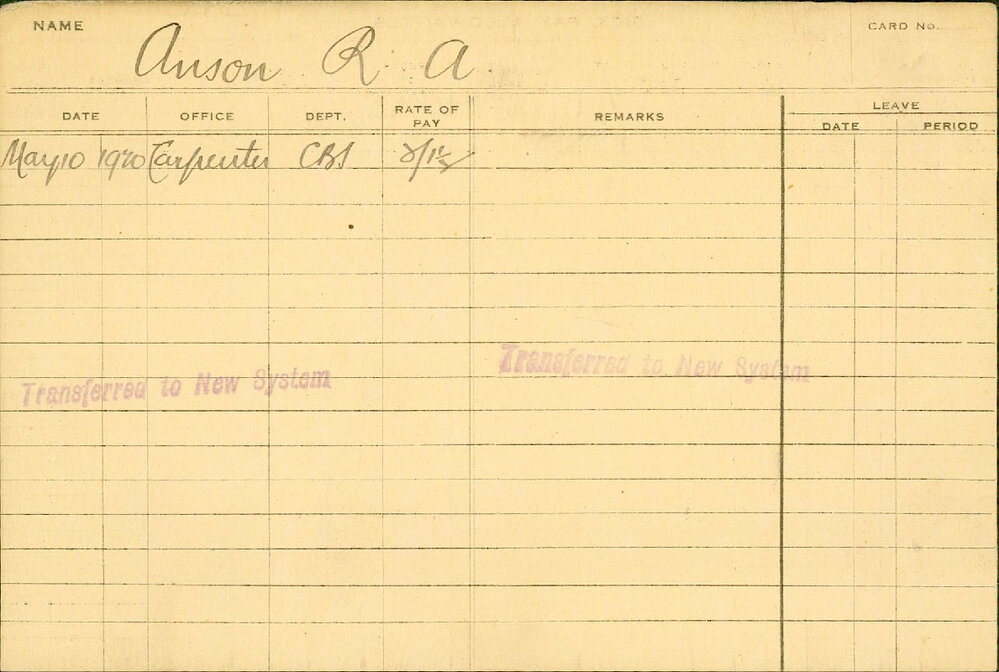 NAME
Anson R A
CARD NO.
DATE OFFICE DEPT. RATE OF PAY REMARKS LEAVE
DATE PERIOD
May 10 1920 Carpenter CBS
Transferred to New System
Transferred to New System